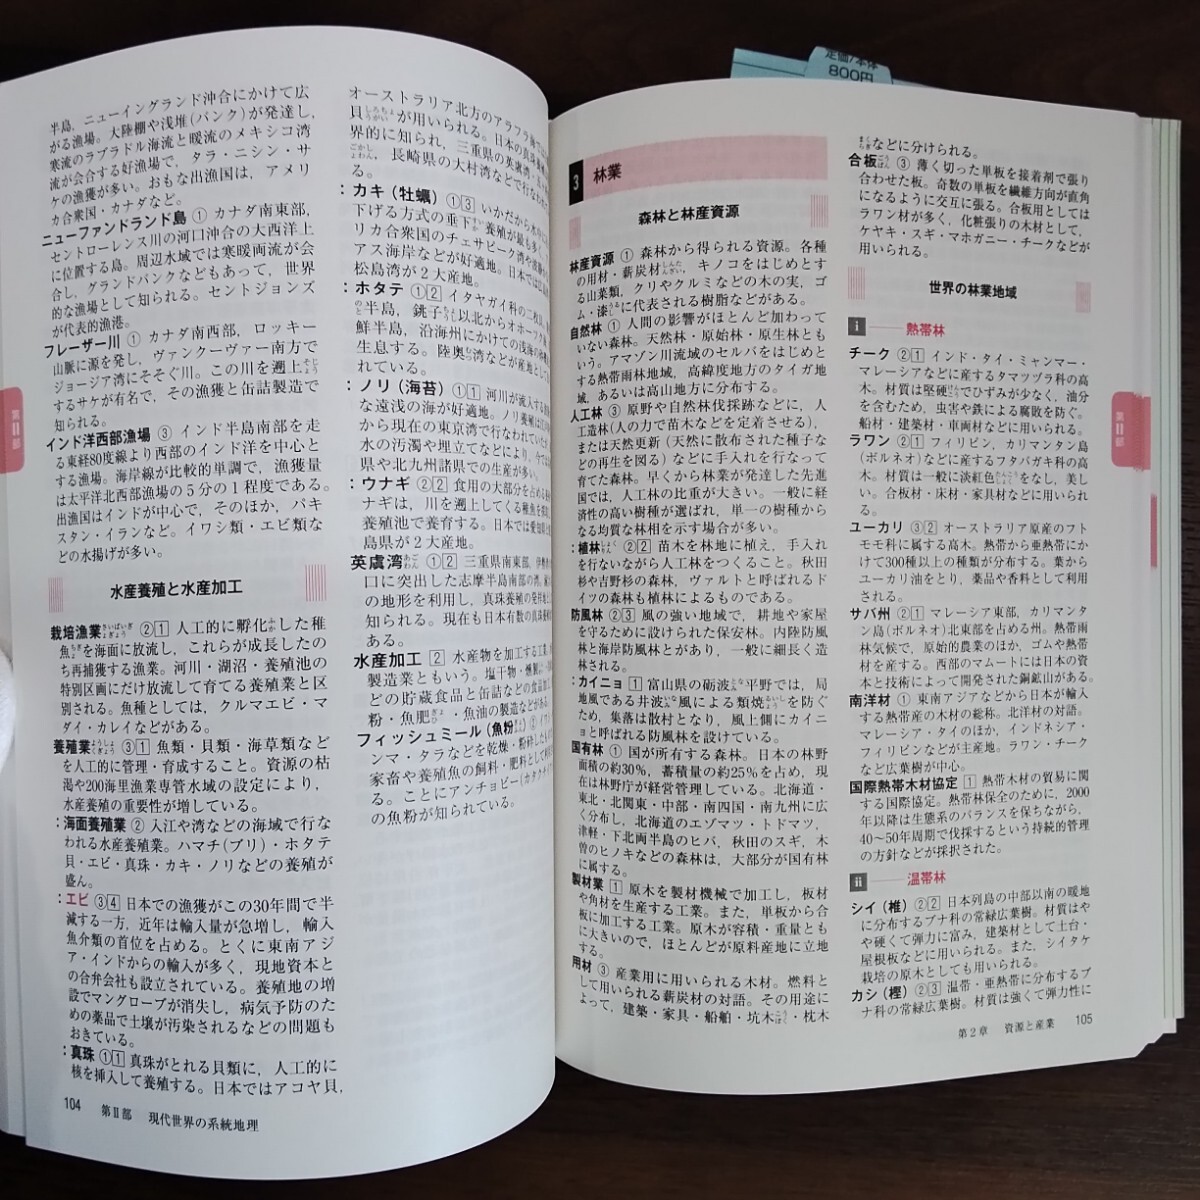 半島，ニューイングランド沖合にかけて広
がる漁場。大陸棚や浅堆(バンク)が発達し，
寒流のラブラドル海流と暖流のメキシコ湾
流が会合する好漁場で，タラ・ニシン・サ
ケの漁獲が多い。おもな出漁国は，アメリ
カ合衆国・カナダなど。
ニューファンドランド島 ① カナダ南東部，
セントローレンス川の河口沖合の大西洋上
に位置する島。周辺水域では寒暖両流が会
合し，グランドバンクなどもあって，世界
的な漁場として知られる。セントジョンズ
が代表的漁港。
フレーザー川 ① カナダ南西部，ロッキー
山脈に源を発し，ヴァンクーヴァー南方で
ジョージア湾にそそぐ川。この川を遡上
するサケが有名で，その漁獲と缶詰製造で
知られる。
インド洋西部漁場 ③ インド半島南部を走
る東経80度線より西部のインド洋を中心と
する漁場。海岸線が比較的単調で，漁獲量
は太平洋北西部漁場の５分の１程度である。
出漁国はインドが中心で，そのほか，パキ
スタン・イランなど。イワシ類・エビ類な
どの水揚げが多い。
水産養殖と水産加工
栽培漁業 ②1 人工的に孵化した稚
魚を海面に放流し，これらが成長したの
ち再捕獲する漁業。河川・湖沼・養殖池の
特別区画にだけ放流して育てる養殖業と区
別される。魚種としては，クルマエビ・マ
ダイ・カレイなどがある。
養殖業 ③1 魚類・貝類・海草類など
を人工的に管理・育成すること。資源の枯
渇や200海里漁業専管水域の設定により，
水産養殖の重要性が増している。
:海面養殖業 ② 入江や湾などの海域で行な
われる水産養殖業。ハマチ(ブリ)・ホタテ
貝・エビ・真珠・カキ・ノリなどの養殖が
盛ん。
:エビ ③4 日本での漁獲がこの30年間で半
減する一方，近年は輸入量が急増し，輸入
魚介類の首位を占める。とくに東南アジ
ア・インドからの輸入が多く，現地資本と
の合弁会社も設立されている。養殖地の増
設でマングローブが消失し，病気予防のた
めの薬品で土壌が汚染されるなどの問題も
おきている。
:真珠 ①1 真珠がとれる貝類に，人工的に
核を挿入して養殖する。日本ではアコヤ貝，
104 第Ⅱ部 現代世界の系統地理
オーストラリア北方のアラフラ海で
貝が用いられる。日本の真珠
界的に知られ，三重県の英虞湾，
，長崎県の大村湾などで行な
る。
:カキ（牡蠣）①3 いかだから
下げる方式の垂下養殖が最も多
リカ合衆国のチェサピーク湾や
アス海岸などが好適地。日本では広
松島湾が２大産地。
:ホタテ ①2 イタヤガイ科の二枚貝。
の半島，銚子以北からオホーツク
鮮半島，沿海州にかけての浅海
生息する。陸奥湾などが産地として
いる。
:ノリ（海苔）①1 河川が流入する
な遠浅の海が好適地。ノリ養殖は
から現在の東京湾で行なわれていた
水の汚濁や埋立てなどにより，今では
県や北九州諸県での生産が多い。
:ウナギ ②2 食用の大部分を占める
ナギは，川を遡上してくる稚魚を
養殖池で養育する。日本では愛知県
島県が２大産地。
英虞湾 ①2 三重県南東部，伊勢
口に突出した志摩半島南部の湾。
の地形を利用し，真珠養殖の発祥地
知られる。現在も日本有数の真珠
ある。
水産加工 2 水産物を加工する工業
製造業ともいう。塩干物・燻製
どの貯蔵食品と缶詰などの食品加
粉・魚肥・魚油の製造などがある
フィッシュミール（魚粉）② イワ
ンマ・タラなどを乾燥・粉砕したも
家畜や養殖魚の飼料・肥料として利
る。ことにアンチョビー(カタクチ
の魚粉が知られている。
第Ⅱ部
定価/本体
800円
3 林業
森林と林産資源
林産資源 ① 森林から得られる資源。各種
の用材・薪炭材，キノコをはじめとす
る山菜類，クリやクルミなどの木の実，ゴ
ム・漆に代表される樹脂などがある。
自然林 ① 人間の影響がほとんど加わって
いない森林。天然林・原始林・原生林とも
いう。アマゾン川流域のセルバをはじめと
する熱帯雨林地域，高緯度地方のタイガ地
域，あるいは高山地方に分布する。
人工林 ③ 原野や自然林伐採跡などに，人
工造林(人の力で苗木などを定着させる)，
または天然更新(天然に散布された種子な
どの再生を図る)などに手入れを行なって
育てた森林。早くから林業が発達した先進
国では，人工林の比重が大きい。一般に経
済性の高い樹種が選ばれ，単一の樹種から
なる均質な林相を示す場合が多い。
:植林 ②2 苗木を林地に植え，手入れ
を行ないながら人工林をつくること。秋田
杉や吉野杉の森林，ヴァルトと呼ばれるド
イツの森林も植林によるものである。
防風林 ②3 風の強い地域で，耕地や家屋
を守るために設けられた保安林。内陸防風
林と海岸防風林とがあり，一般に細長く造
林される。
:カイニョ 1 富山県の砺波平野では，局
地風である井波風による類焼を防ぐ
ため，集落は散村となり，風上側にカイニ
ョと呼ばれる防風林を設けている。
国有林 ① 国が所有する森林。日本の林野
面積の約30%，蓄積量の約25%を占め，現
在は林野庁が経営管理している。北海道・
東北・北関東・中部・南四国・南九州に広
く分布し，北海道のエゾマツ・トドマツ，
津軽・下北両半島のヒバ，秋田のスギ，木
曽のヒノキなどの森林は，大部分が国有林
に属する。
製材業 1 原木を製材機械で加工し，板材
や角材を生産する工業。また，単板から合
板に加工する工業。原木が容積・重量とも
に大きいので，ほとんどが原料産地に立地
する。
用材 ③ 産業用に用いられる木材。燃料と
して用いられる薪炭材の対語。その用途に
よって，建築・家具・船舶・坑木・枕木
などに分けられる。
合板 ③ 薄く切った単板を接着剤で張り
合わせた板。奇数の単板を繊維方向が直角
になるように交互に張る。合板用としては
ラワン材が多く，化粧張りの木材として，
ケヤキ・スギ・マホガニー・チークなどが
用いられる。
世界の林業地域
i 熱帯林
チーク ②1 インド・タイ・ミャンマー・
マレーシアなどに産するタマツヅラ科の高
木。材質は堅硬でひずみが少なく，油分
を含むため，虫害や鉄による腐敗を防ぐ。
船材・建築材・車両材などに用いられる。
ラワン ②1 フィリピン，カリマンタン島
(ボルネオ)などに産するフタバガキ科の高
木。材質は一般に淡紅色をなし，美し
い。合板材・床材・家具材などに用いられ
る。
ユーカリ ③2 オーストラリア原産のフト
モモ科に属する高木。熱帯から亜熱帯にか
けて300種以上の種類が分布する。葉から
ユーカリ油をとり，薬品や香料として利用
される。
サバ州 ②1 マレーシア東部，カリマンタ
ン島(ボルネオ)北東部を占める州。熱帯雨
林気候で，原始的農業のほか，ゴムや熱帯
材を産する。西部のマムートには日本の資
本と技術によって開発された銅鉱山がある。
南洋材 ① 東南アジアなどから日本が輸入
する熱帯産の木材の総称。北洋材の対語。
マレーシア・タイのほか，インドネシア・
フィリピンなどが主産地。ラワン・チーク
など広葉樹が中心。
国際熱帯木材協定 1 熱帯木材の貿易に関
する国際協定。熱帯林保全のために，2000
年以降は生態系のバランスを保ちながら，
40〜50年周期で伐採するという持続的管理
の方針などが採択された。
ii 温帯林
シイ（椎）②2 日本列島の中部以南の暖地
に分布するブナ科の常緑広葉樹。材質はや
や硬くて弾力に富み，建築材として土台・
屋根板などに用いられる。また，シイタケ
栽培の原木としても用いられる。
カシ（樫）②3 温帯・亜熱帯に分布するブ
ナ科の常緑広葉樹。材質は強くて弾力性に
第２章 資源と産業 105
第Ⅱ部